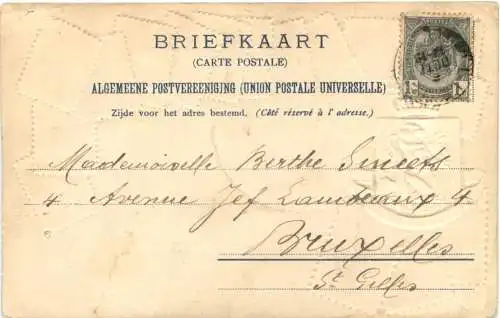 BRIEFKAART
(CARTE POSTALE)
ALGEMEENE POSTVEREENIGING (UNION POSTALE UNIVERSELLE)
Zijde voor het adres bestemd. (Côté réservé à l'adresse.)
1c 1c
Mademoiselle Berthe Smeets
4 Avenue Jef Lambeaux 4
Bruxelles
St Gilles